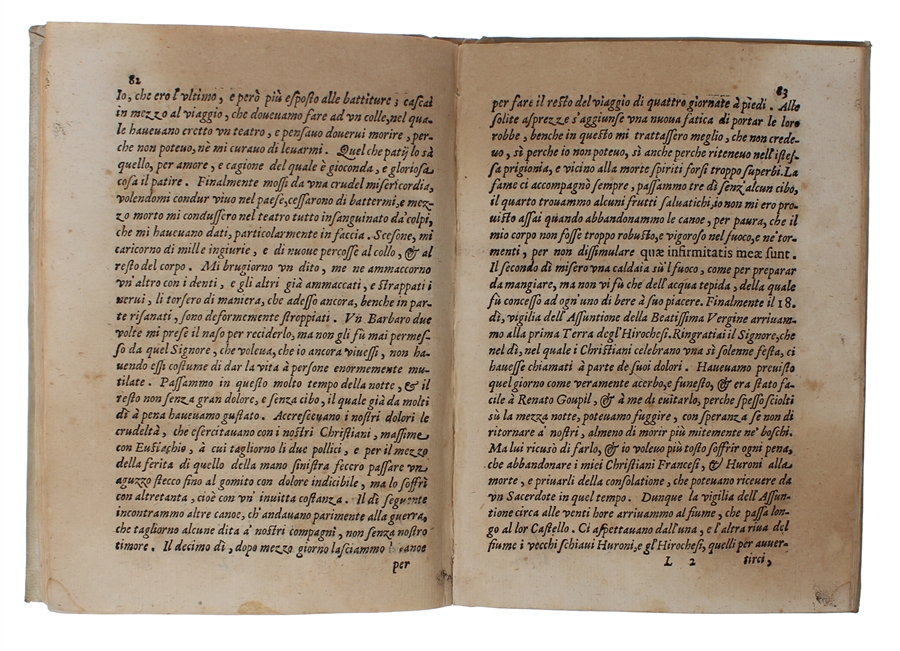 82
Io, che ero l'vltimo, e però più esposto alle battiture; cascai
in mezzo al viaggio, che doueuamo fare ad vn colle, nel qua-
le haueuano eretto vn teatro, e pensauo douerui morire, per-
che non poteuo, nè mi curauo di leuarmi. Quel che patij lo sà
quello, per amore, e cagione del quale è gioconda, e gloriosa
cosa il patire. Finalmente mossi da vna crudel misericordia,
volendomi condur viuo nel paese, cessarono di battermi, e mez-
zo morto mi condussero nel teatro tutto insanguinato da' colpi,
che mi haueuano dati, particolarmente in faccia. Scesone, mi
caricorno di mille ingiurie, e di nuoue percosse al collo, & al
resto del corpo. Mi brugiorno vn dito, me ne ammaccorno
vn'altro con i denti, e gli altri già ammaccati, e strappati i
nerui, li torsero di maniera, che adesso ancora, benche in par-
te risanati, sono deformemente stroppiati. Vn Barbaro due
volte mi prese il naso per reciderlo, ma non gli fù mai permes-
so da quel Signore, che voleua, che io ancora viuessi, non ha-
uendo essi costume di dar la vita à persone enormemente mu-
tilate. Passammo in questo molto tempo della notte, & il
resto non senza gran dolore, e senza cibo, il quale già da molti
dì à pena haueuamo gustato. Accresceuano i nostri dolori le
crudeltà, che esercitauano con i nostri Christiani, massime
con Eustachio, à cui tagliorno li due pollici, e per il mezzo
della ferita di quello della mano sinistra fecero passare vn
aguzzo stecco fino al gomito con dolore indicibile, ma lo soffrì
con altretanta, cioè con vn' inuitta costanza. Il dì seguente
incontrammo altre canoe, ch'andauano parimente alla guerra,
che tagliorno alcune dita a' nostri compagni, non senza nostro
timore. Il decimo dì, dopo mezzo giorno lasciammo le canoe
per
83
per fare il resto del viaggio di quattro giornate à piedi. Alle
solite asprezze s'aggiunse vna nuoua fatica di portar le loro
robbe, benche in questo mi trattassero meglio, che non crede-
uo, sì perche io non poteuo, sì anche perche riteneuo nell'istes-
sa prigionia, e vicino alla morte spiriti forsi troppo superbi. La
fame ci accompagnò sempre, passammo tre dì senz'alcun cibo,
il quarto trouammo alcuni frutti saluatichi, io non mi ero pro-
uisto assai quando abbandonammo le canoe, per paura, che il
mio corpo non fosse troppo robusto, e vigoroso nel fuoco, e ne' tor-
menti, per non dissimulare quæ infirmitatis meæ sunt.
Il secondo dì misero vna caldaia sù'l fuoco, come per preparar
da mangiare, ma non vi fù che dell'acqua tepida, della quale
fù concesso ad ogn'vno di bere à suo piacere. Finalmente il 18.
dì, vigilia dell'Assuntione della Beatissima Vergine arriuam-
mo alla prima Terra degl'Hirochesi. Ringratiai il Signore, che
nel dì, nel quale i Christiani celebrano vna sì solenne festa, ci
hauesse chiamati à parte de suoi dolori. Haueuamo preuisto
quel giorno come veramente acerbo, e funesto, & era stato fa-
cile à Renato Goupil, & à me di euitarlo, perche spesso sciolti
sù la mezza notte, poteuamo fuggire, con speranza se non di
ritornare a' nostri, almeno di morir più mitemente ne' boschi.
Ma lui ricusò di farlo, & io voleuo più tosto soffrir ogni pena,
che abbandonare i miei Christiani Francesi, & Huroni alla
morte, e priuarli della consolatione, che poteuano riceuere da
vn Sacerdote in quel tempo. Dunque la vigilia dell'Assun-
tione circa alle venti hore arriuammo al fiume, che passa lon-
go al lor Castello. Ci aspettauano dall'vna, e l'altra riua del
fiume i vecchi schiaui Huroni, e gl'Hirochesi, quelli per auuer-
L 2 tirci,